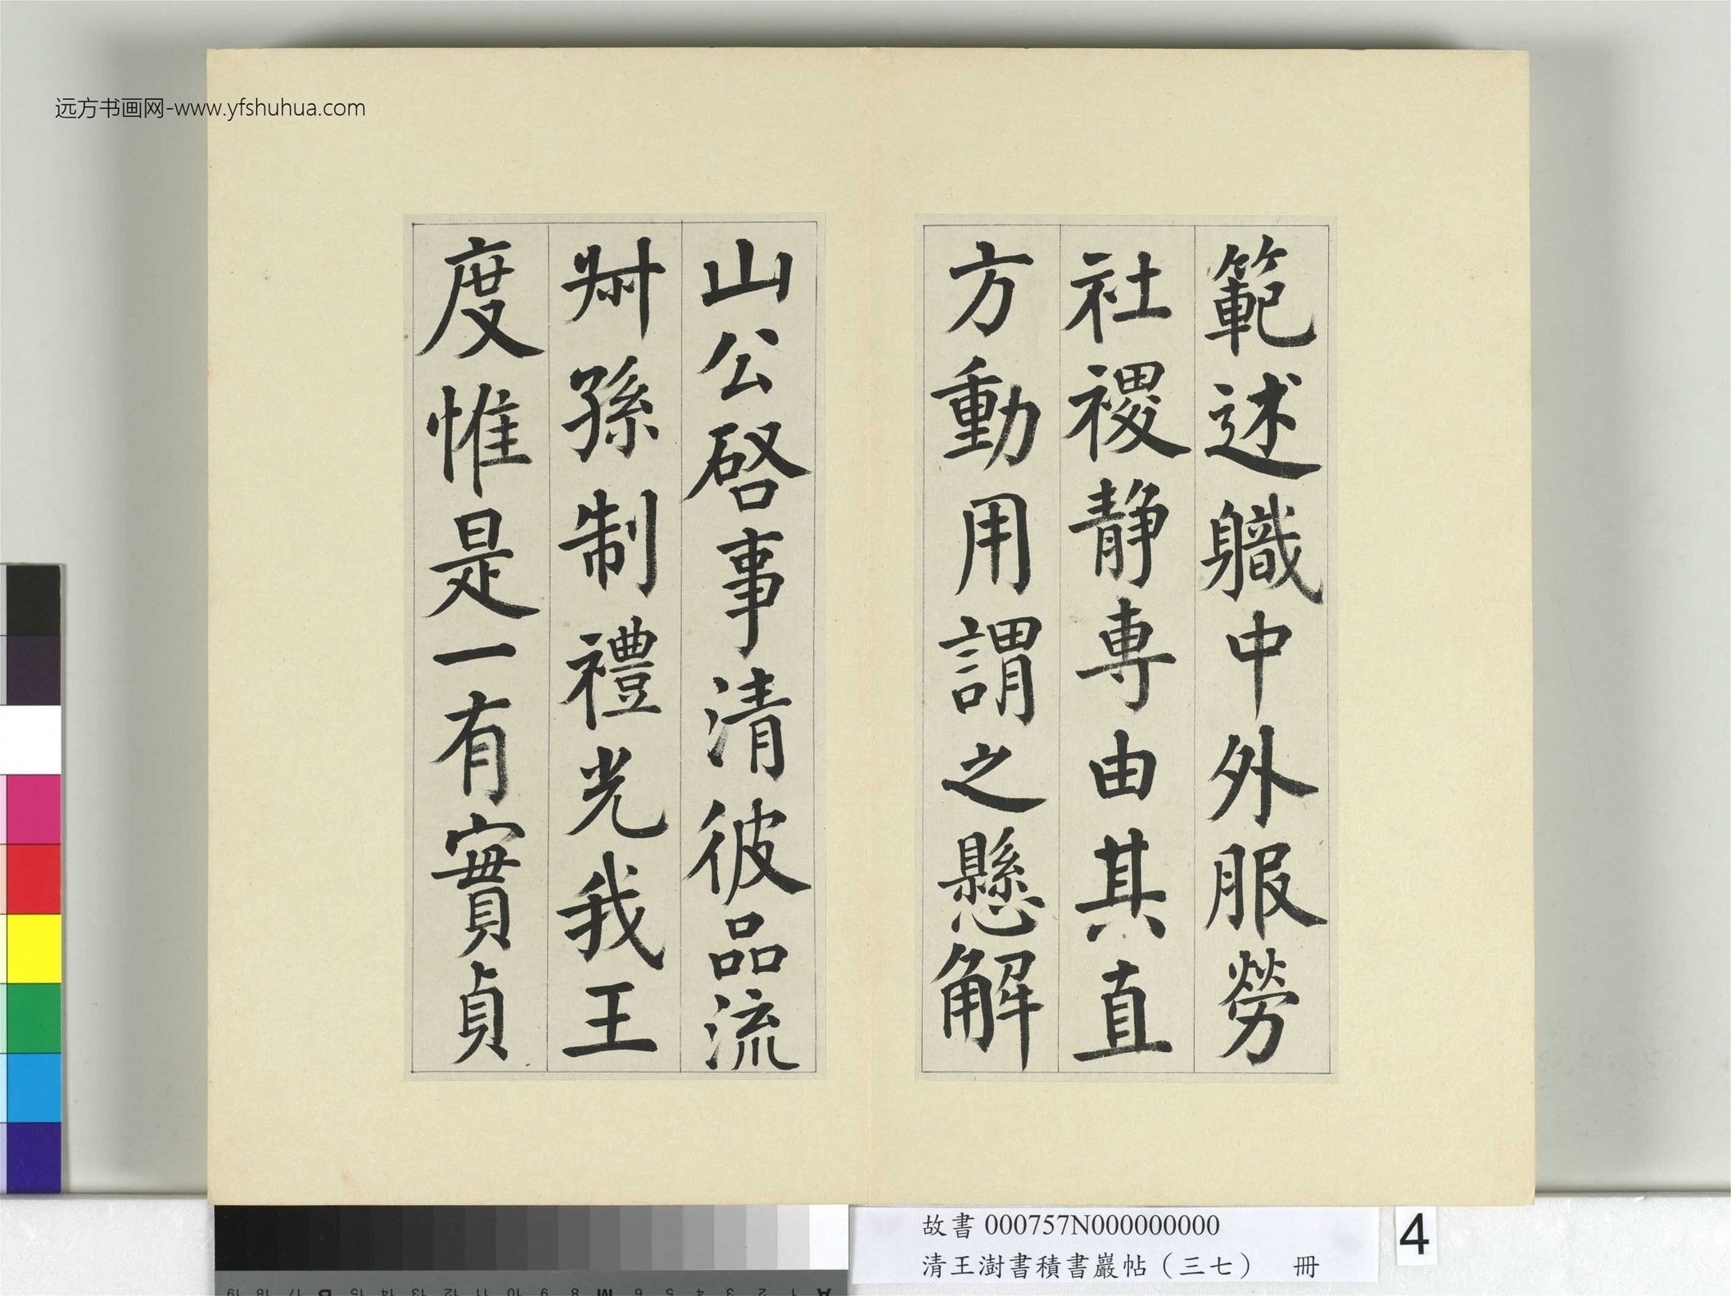 远方书画网-www.yfshuhua.com
範述軄中外服勞
社稷靜専由其直
方動用謂之懸解
山公啓事清彼品流
叔孫制禮光我王
度惟是一有實貞
故書 000757N000000000
清王澍書積書巖帖（三七） 冊
4